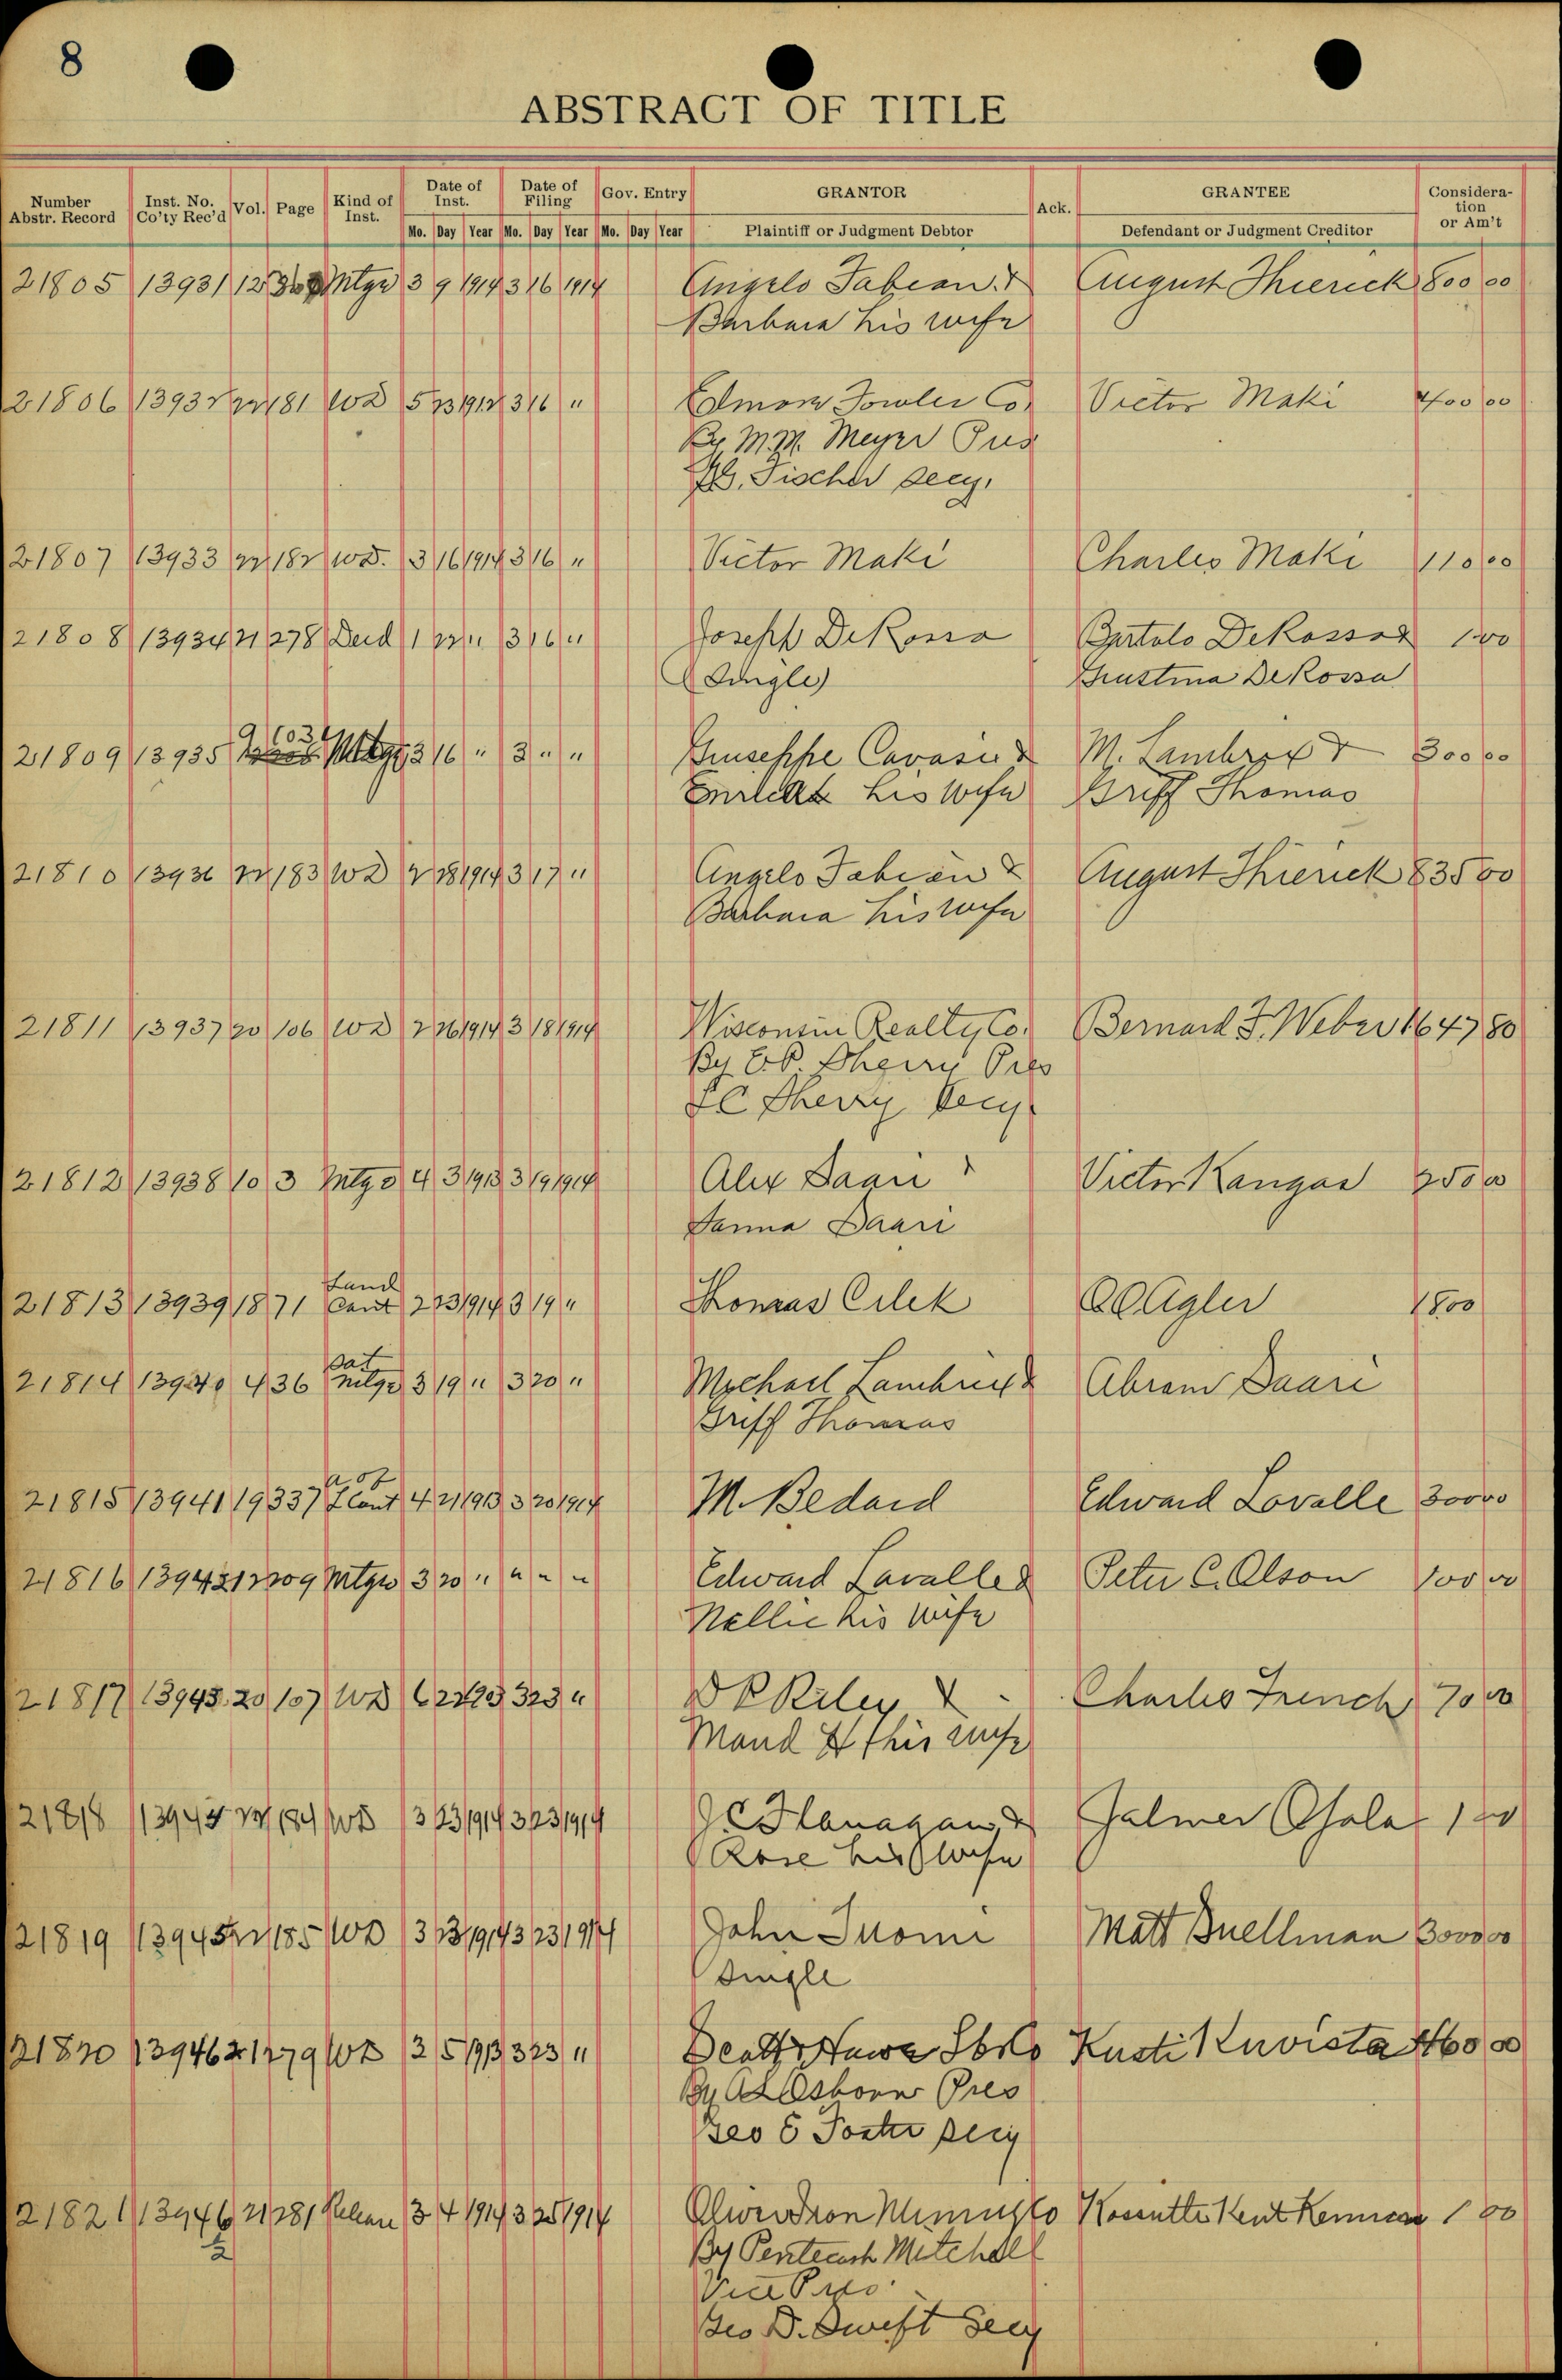 8
ABSTRACT OF TITLE
Number Abstr. Record Inst. No. Co'ty Rec'd Vol. Page Kind of Inst. Date of Inst. Date of Filing Gov. Entry GRANTOR Ack. GRANTEE Considera-tion or Am't
Mo. Day Year Mo. Day Year Mo. Day Year Plaintiff or Judgment Debtor Defendant or Judgment Creditor
21805 13931 12 Mtge 3 9 1914 3 16 1914 Angelo Fabian & August Thierick 800 00
Barbara his wife
21806 13932 22 181 WD 5 23 1912 3 16 " Fowler Co. Victor Maki 400 00
By M.M. Meyer Pres
Fischer Secy.
21807 13933 22 182 WD. 3 16 1914 3 16 " Victor Maki Charles Maki 110 00
21808 13934 21 278 Deed 1 22 " 3 16 " Joseph DeRossa Bortolo DeRossa & 1 00
(Single) Giustina DeRossa
21809 13935 9 603 Mtge 3 16 " 3 " " Giuseppe Cavasin & M. Lambrix & 300 00
his wife Griff Thomas
21810 13936 22 183 WD 2 28 1914 3 17 " Angelo Fabian & August Thierick 835 00
Barbara his wife
21811 13937 20 106 WD 2 26 1914 3 18 1914 Wisconsin Realty Co. Bernard F. Weber 1647 80
By E.P. Sherry Pres
Sherry Secy.
21812 13938 10 3 Mtge 4 3 1913 3 19 1914 Alex Saari Victor Kangas 250 00
Sanna Saari
Land
21813 13939 18 71 Cont 2 23 1914 3 19 " Thomas Cilek Agler 1800
Sat
21814 13940 4 36 Mtge 3 19 " 3 20 " Michael Lambrix & Abram Saari
Griff Thomas
A of
21815 13941 19 337 L Cont 4 21 1913 3 20 1914 M. Bedard Edward Lavalle 300 00
21816 13942 12 209 Mtge 3 20 " " " " Edward Lavalle & Peter C. Olson 100 00
Nellie his wife
21817 13943 20 107 WD 3 23 " Riley & Charles French 70 00
Maud H his wife
21818 13944 22 184 WD 3 23 1914 3 23 1914 J C Flanagan & Jalmer Ojala 1 00
Rose his wife
21819 13945 22 185 WD 3 23 1914 3 23 1914 John Tuomi Matt Buellman 3000 00
Single
21820 13946 21 279 WD 3 5 1913 3 23 " Scott & Howe Lbr Co Kusti Kuvista 460 00
By Osborn Pres
Geo E Foster Secy
21821 13946 21 281 Release 3 4 1914 3 25 1914 Oliver Iron Mining Co Kossuth Kent Kennan 1 00
½ By Pentecost Mitchell
Vice Pres.
Geo D. Swift Secy